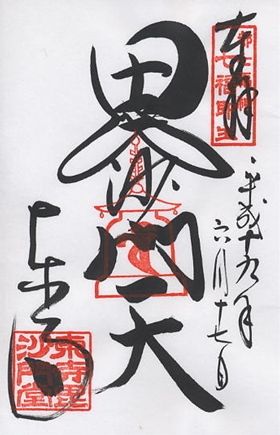 奉拝
平成十九年
六月十七日
毘沙門天
東寺
東寺毘
沙門堂